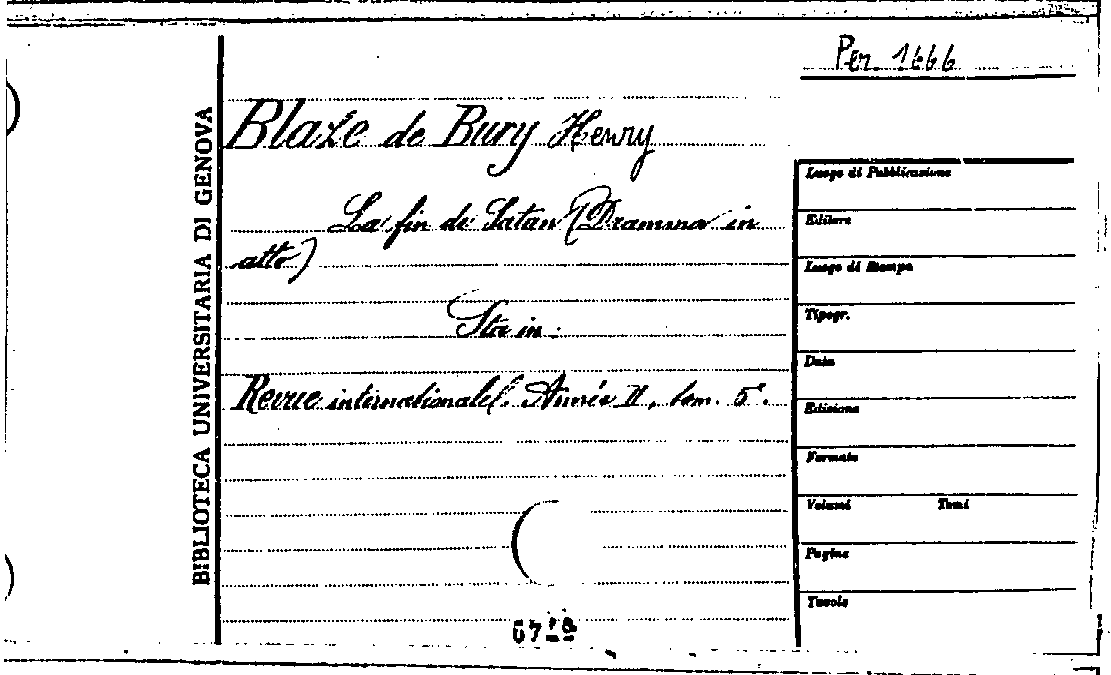 Per. 1666
BIBLIOTECA UNIVERSITARIA DI GENOVA
Blaze de Bury Henry
La fin de Satan (Dramma in
atto)
Sta in:
Revue internationale. Année II, tom. 5°.
Luogo di Pubblicazione
Editore
Luogo di Stampa
Tipogr.
Data
Edizione
Formato
Volumi Tomi
Pagine
Tavole